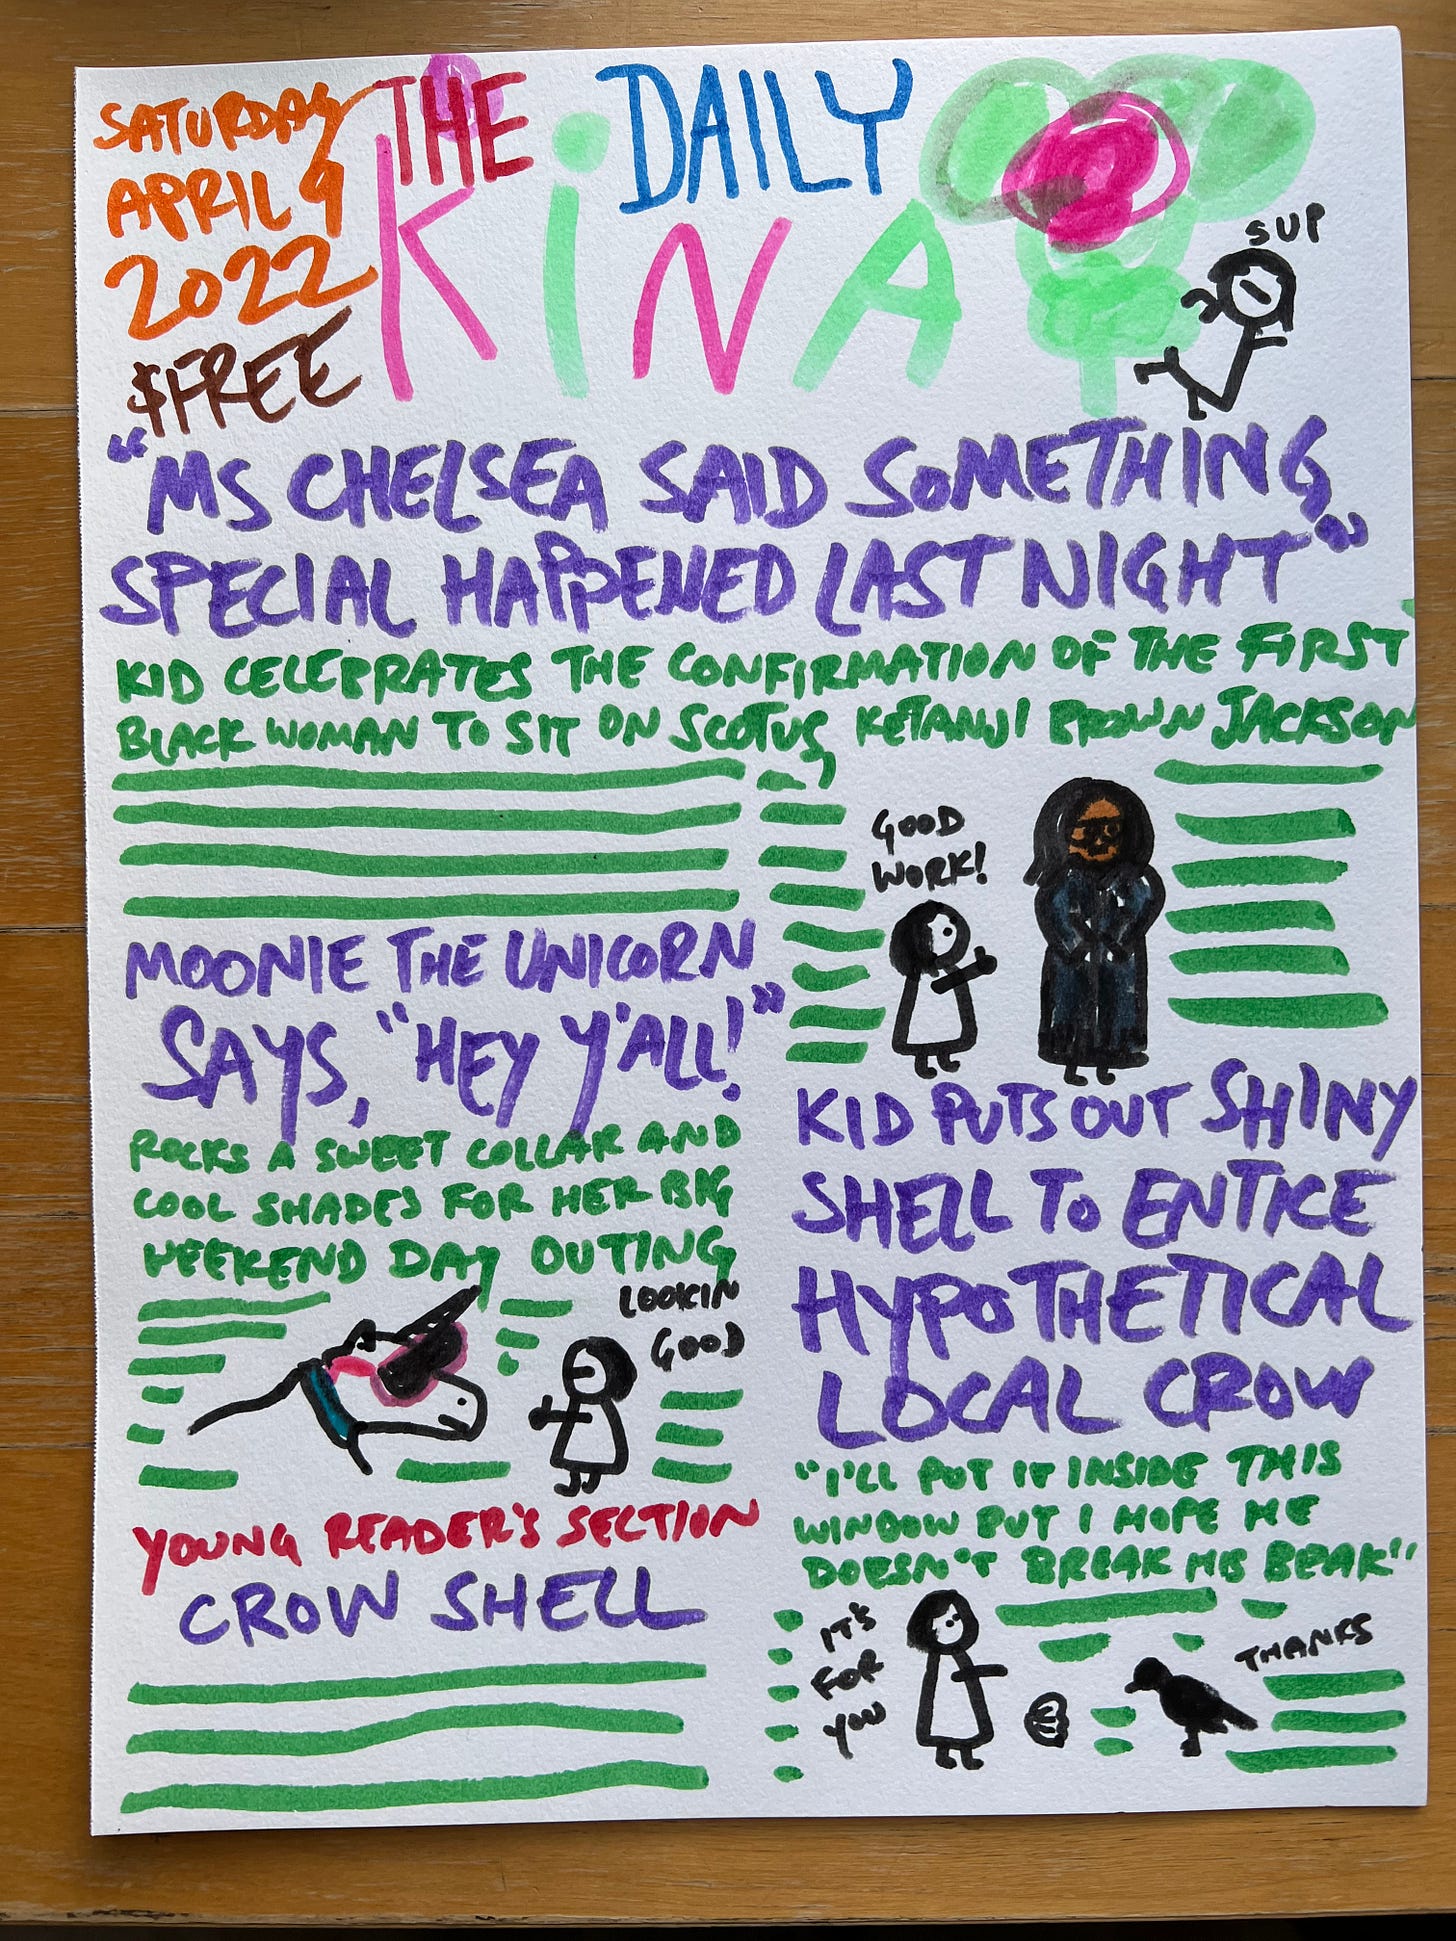 SATURDAY
APRIL 9
2022
$FREE
THE DAILY
KiNA
SUP
"MS CHELSEA SAID SOMETHING
SPECIAL HAPPENED LAST NIGHT"
KID CELEBRATES THE CONFIRMATION OF THE FIRST
BLACK WOMAN TO SIT ON SCOTUS, KETANJI BROWN JACKSON
GOOD
WORK!
MOONIE THE UNICORN
SAYS, "HEY Y'ALL!"
ROCKS A SWEET COLLAR AND
COOL SHADES FOR HER BIG
WEEKEND DAY OUTING
LOOKIN
GOOD
KID PUTS OUT SHINY
SHELL TO ENTICE
HYPOTHETICAL
LOCAL CROW
"I'LL PUT IT INSIDE THIS
WINDOW BUT I HOPE HE
DOESN'T BREAK HIS BEAK"
IT'S
FOR
YOU
THANKS
YOUNG READER'S SECTION
CROW SHELL